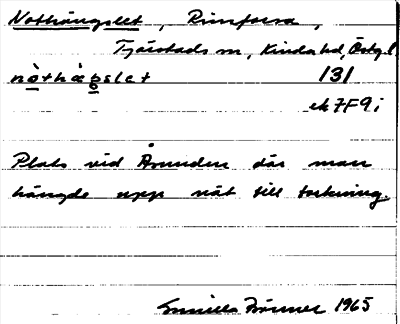 Nothängslet, Rimforsa,
Tjärstads sn, Kinda hd, Östg.l
nòthàgslet 131
ek 7F9i
Plats vid Åsunden där man
hängde upp nät till torkning.
Gunilla 1965